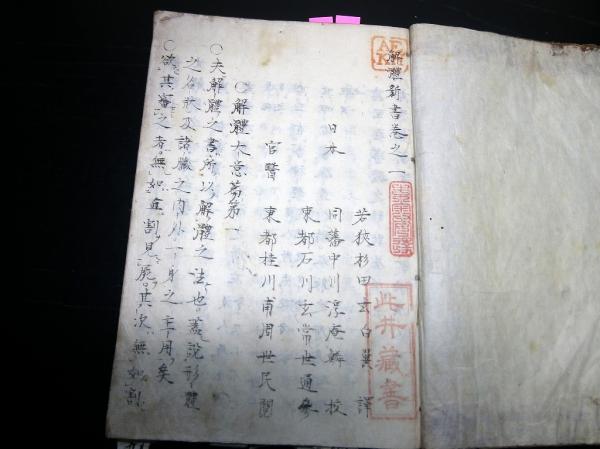 解體新書卷之一
若狹 杉田玄白翼 譯
日本 同藩 中川淳庵鱗 校
東都 石川玄常世通 參
官醫 東都 桂川甫周世民 閱
○解體大意篇第一
○夫解體之書所以解體之法也蓋說形體
之名狀及諸臟之內外一身之主用矣
○欲其審之者無如直割見屍其次無如割
井藏書